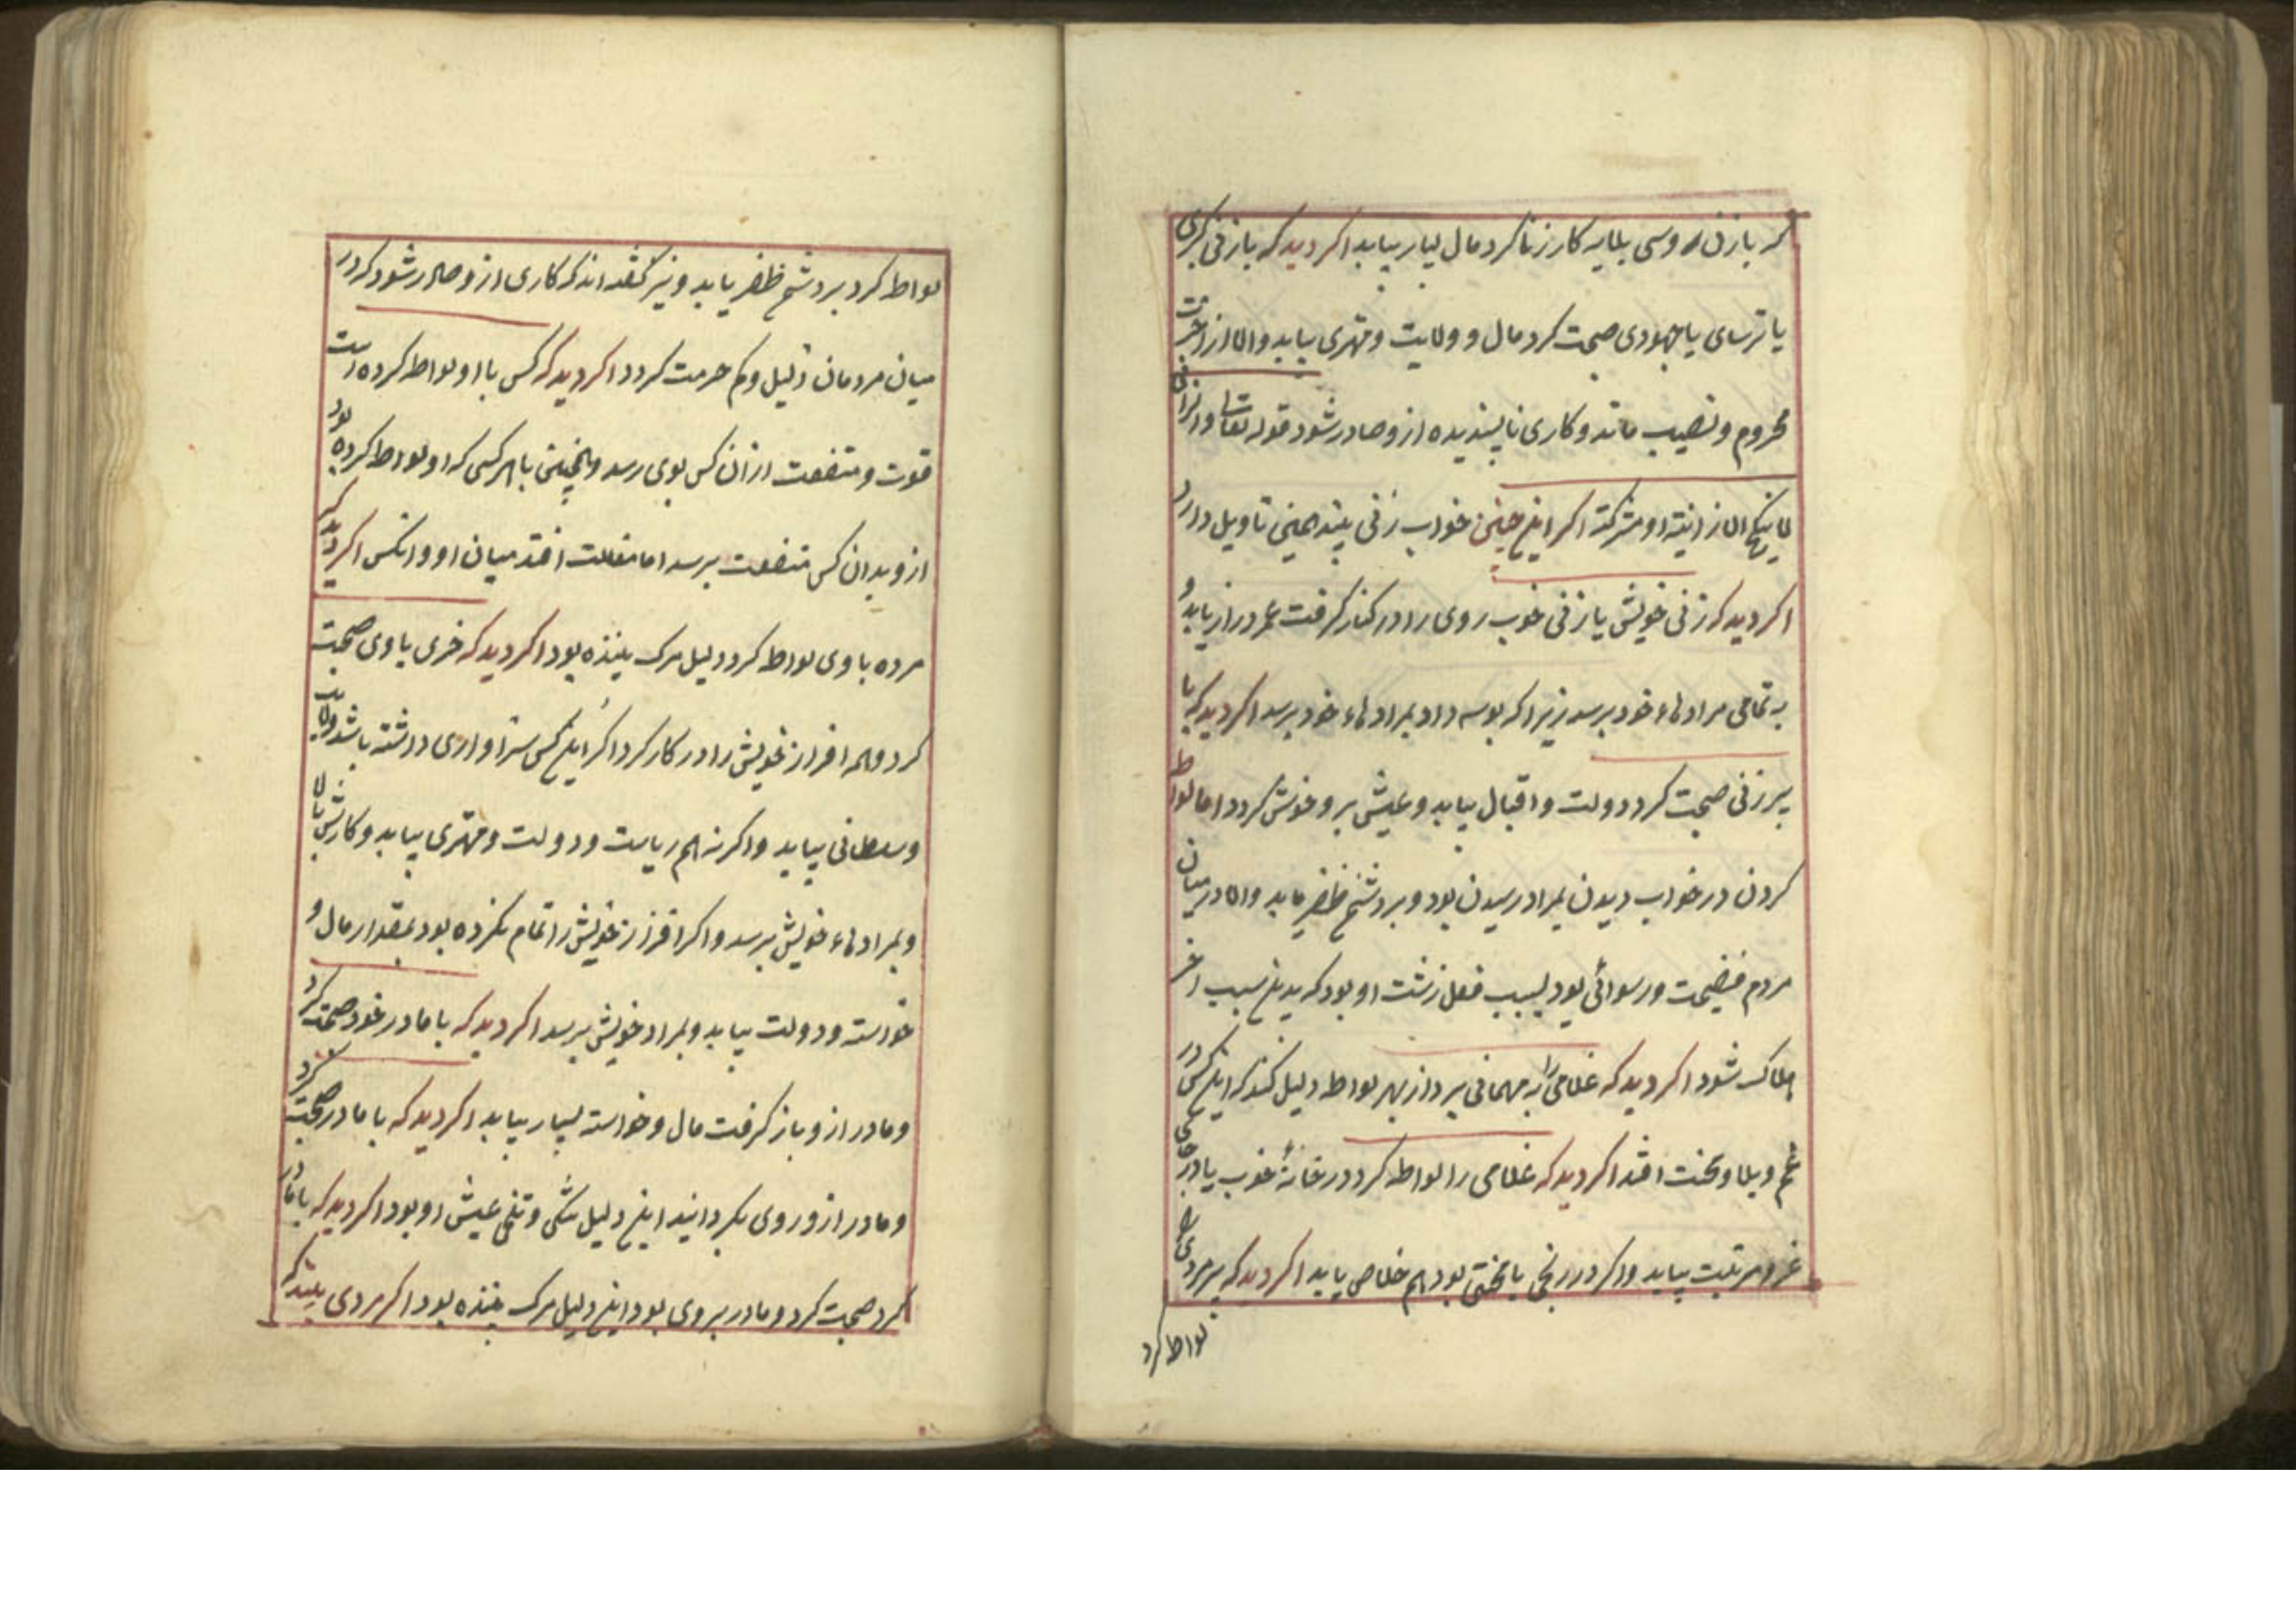 که با زن روسپی بلایه کار زنا کرد مال بسیار بیابد اکر دید که با زن کبری
یا ترسای یا جهودی صحبت کرد مال و ولایت و مهتری بیابد والا از آخرت
محروم و نصیب ماند و کاری ناپسندیده ازو صادر شود قوله تعالی والزانی
لا ینکح الا زانیة او مشرکة اکر این چنین خواب زنی بیند همین تاویل دارد
اکر دید که زنی خویش یا زنی خوب روی را در کنار کرفت عمر دراز یابد و
به تمامی مرادهاء خود برسد زیرا که بوسه داد بمرادهاء خود برسد اکر دید که با
پیر زنی صحبت کرد دولت و اقبال بیابد و عیش برو خوش کردد اما لواطه
کردن در خواب دیدن بمراد رسیدن بود و بر دشمن ظفر یابد واما در میان
مردم فضیحت و رسوائی بود بسبب فعل زشت او بود که بدین سبب آخر
هلاک شود اکر دید که غلامی را به مهمانی برد از بهر لواطه دلیل کند که این کس در
غم و بلا و محنت افتد اکر دید که غلامی را لواطه کرد در خانهٔ خوب یا در جای
عز و مرتبت بیابد واکر در رنجی یا محنتی بود هم خلاصی یابد اکر دید که پیر مردی
لواط کرد
لواط کرد بر دشمن ظفر یابد و نیز کفته اند که کاری ازو صادر شود که در
میان مردمان ذلیل و کم حرمت کردد اکر دید که کس با او لواط کرده است
قوت و منفعت از آن کس بوی رسد و همچنین با هر کسی که او لواط کرده بود
ازو بدان کس منفعت برسد اما مقالت افتد میان او و آنکس اکر دید که
مرده با وی لواط کرد دلیل مرک بیننده بود اکر دید که خری با وی صحبت
کرد و همه افراز خویش را در کار کرد اکر این کس سزاواری داشته باشد ولایت
و سلطانی بیابد واکر نه هم ریاست و دولت و مهتری بیابد و کارش بالا
و بمرادهاء خویش برسد واکر افراز خویش را تمام نکرده بود بمقدار مال و
خواسته و دولت بیابد و بمراد خویش برسد اکر دید که با مادر خود صحبت کرد
و مادر ازو باز کرفت مال و خواسته بسیار بیابد اکر دید که با مادر صحبت کرد
و مادر ازو روی بکردانید این دلیل تنکی و تلخی عیش او بود اکر دید که با مادر
کرد صحبت کرد و مادر بر وی بود این دلیل مرک بیننده بود اکر مردی بیند که